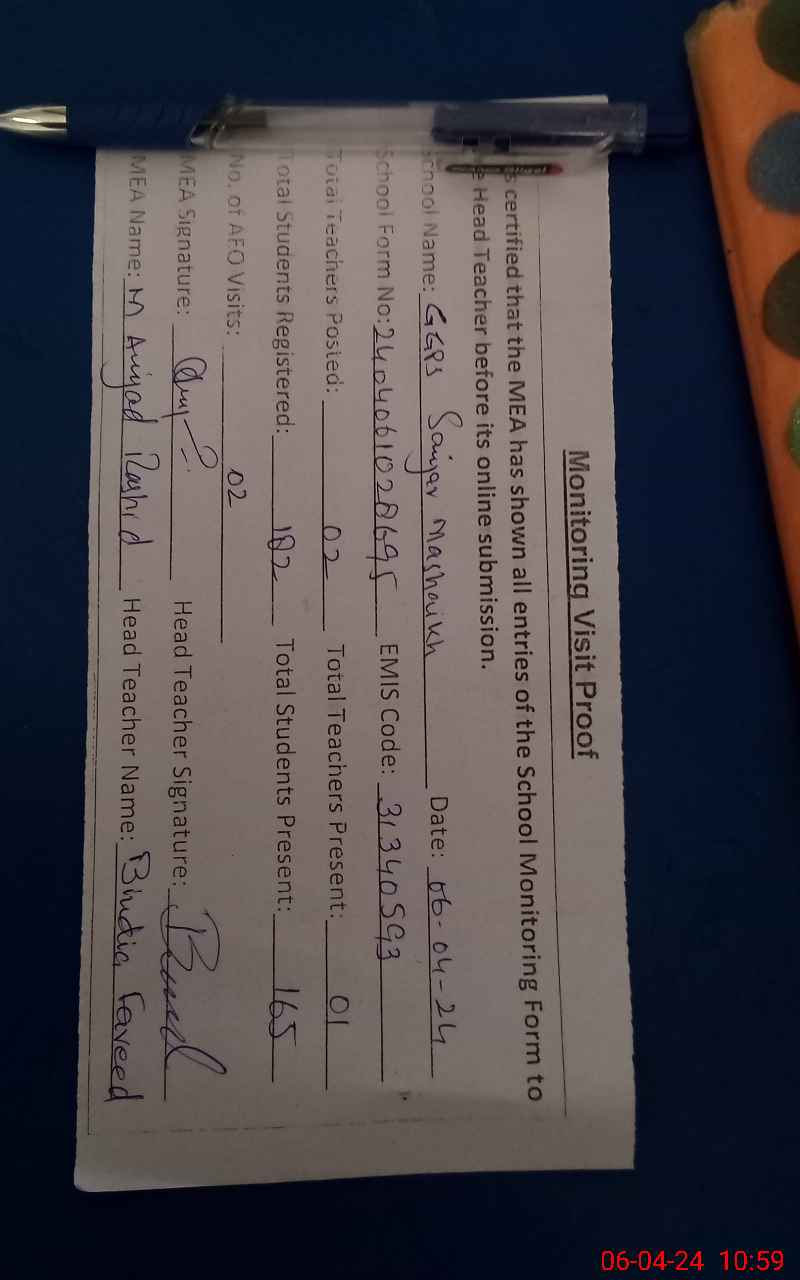 Monitoring Visit Proof
s certified that the MEA has shown all entries of the School Monitoring Form to
e Head Teacher before its online submission.
School Name: GGPS Saiyar Mashaikh Date: 06-04-24
School Form No: 2404061028695 EMIS Code: 31340593
Total Teachers Posted: 02 Total Teachers Present: 01
Total Students Registered: 182 Total Students Present: 165
No. of AEO Visits: 02
MEA Signature: Head Teacher Signature:
MEA Name: M Amjad Rashid Head Teacher Name: Bindia Faveed
06-04-24 10:59